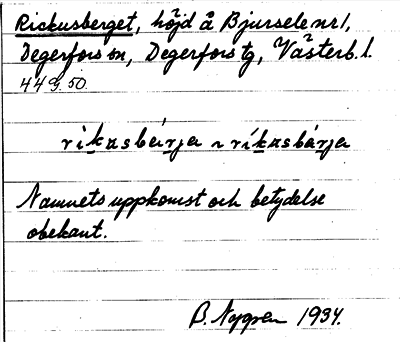 Rickusberget, höjd å Bjursele nr 1,
Degerfors sn, Degerfors tg, Västerb. l.
44 g. 50.
ríkɐsbárja ~ ríkɐsbárja
Namnets uppkomst och betydelse
obekant.
B. Nygren 1934.